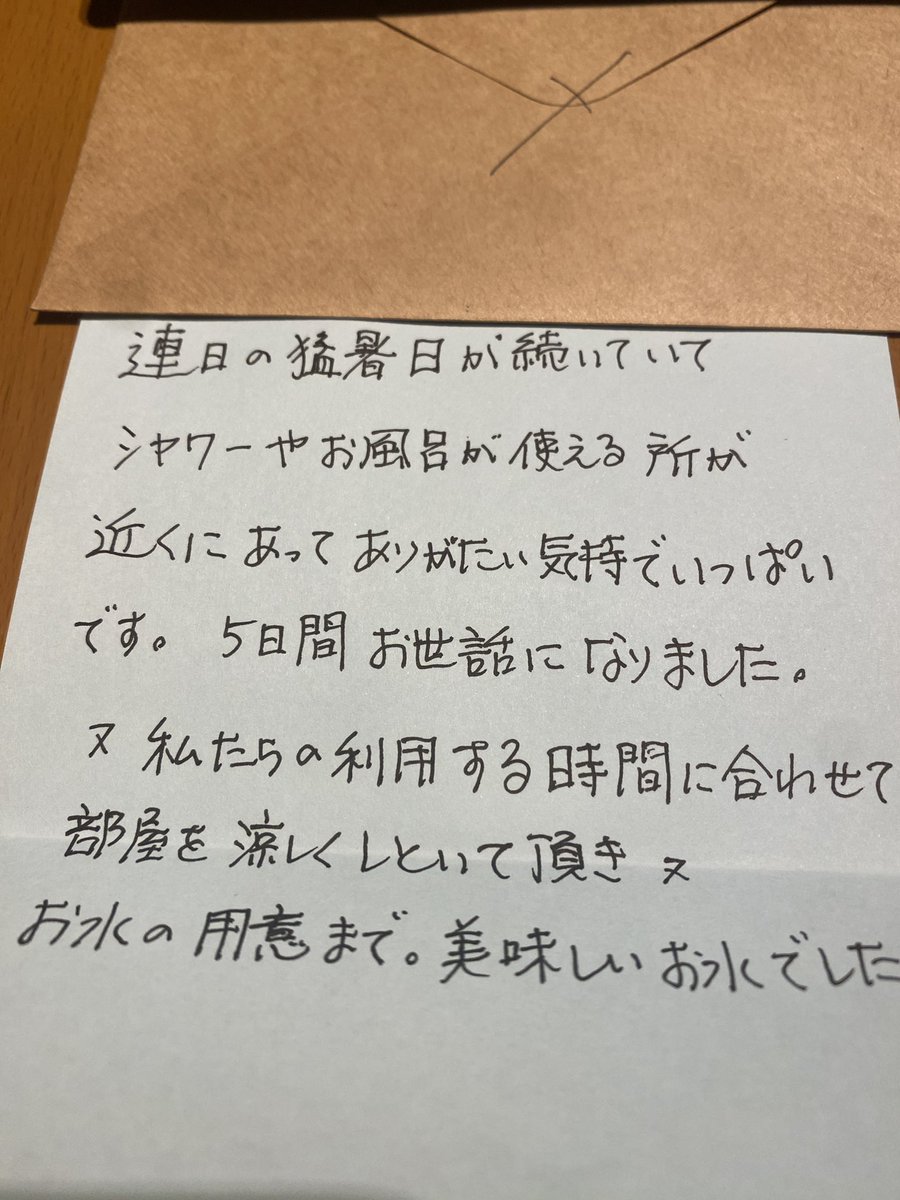 連日の猛暑日が続いていて
シャワーやお風呂が使える所が
近くにあってありがたい気持でいっぱい
です。5日間お世話になりました。
又私たちの利用する時間に合わせて
部屋を涼しくしといて頂き又
お水の用意まで。美味しいお水でした